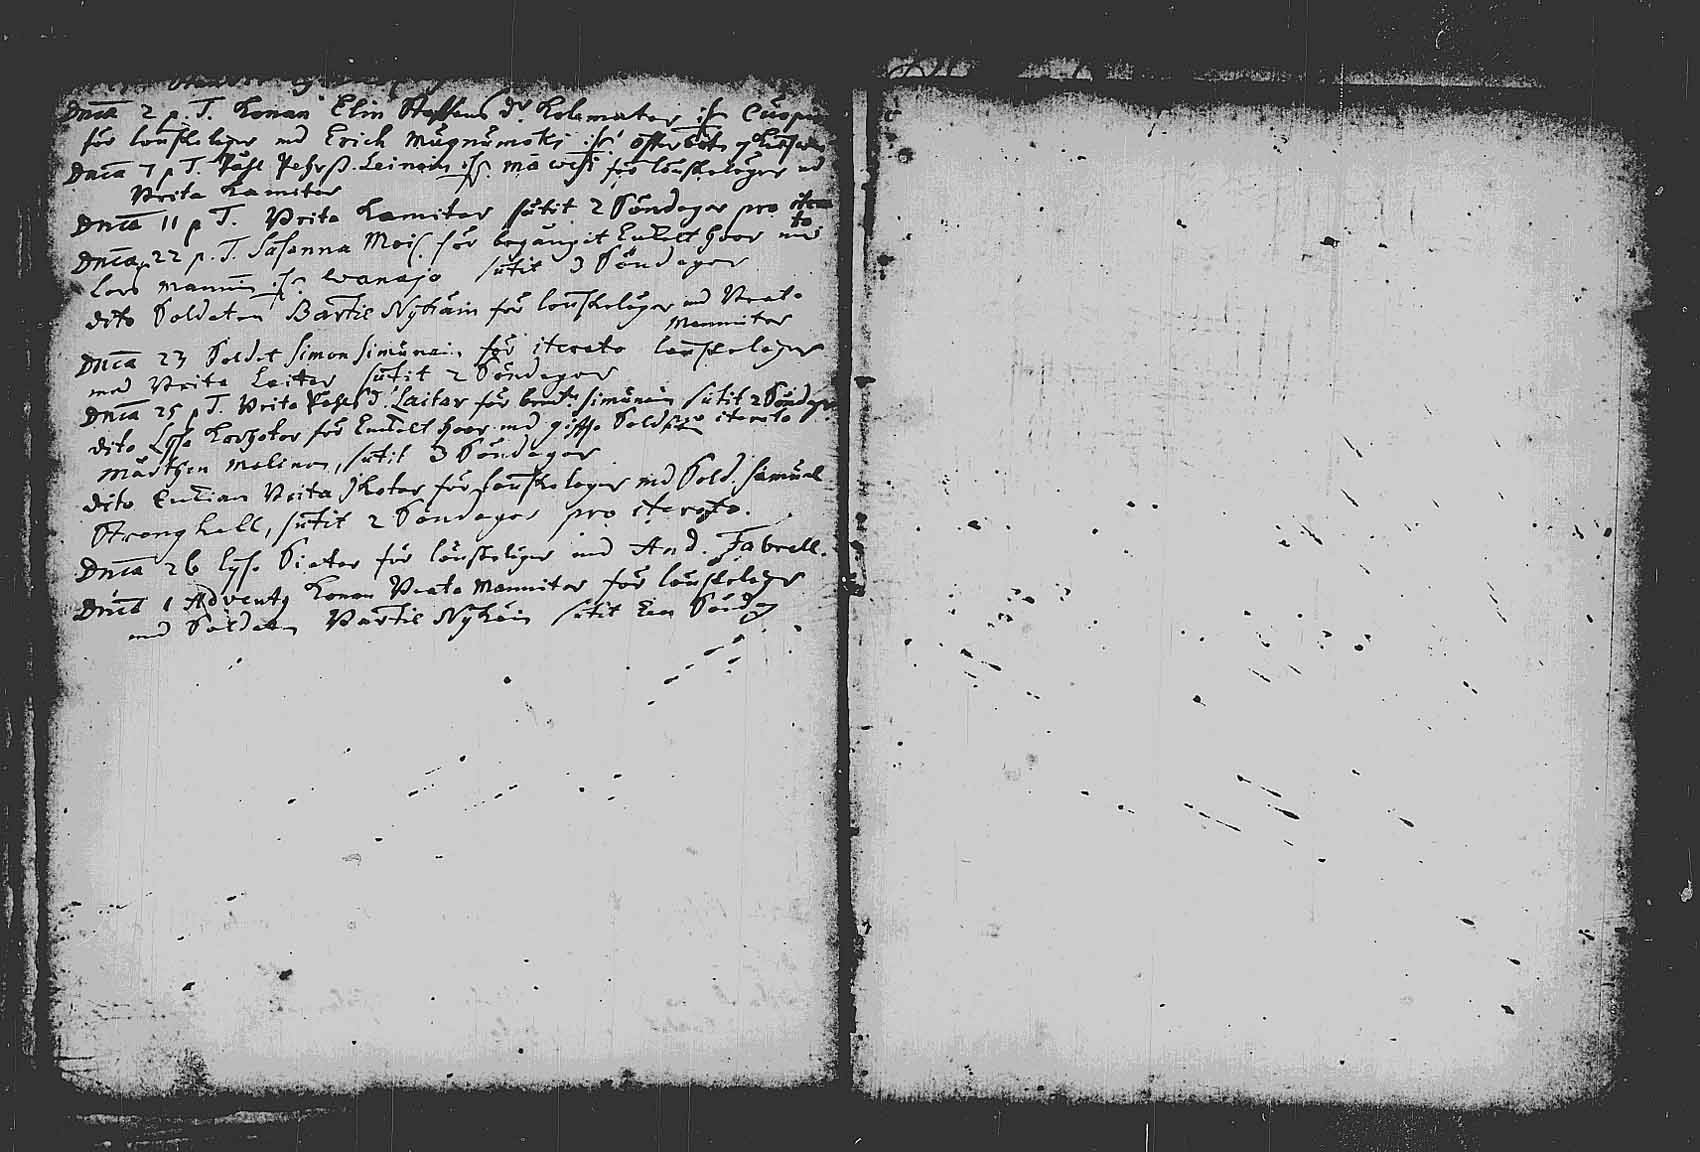 Dnica 2 p. T. Konan Elin Staffans dr. Kolematar ifr Cuopio
för lönskeläger md Erich Mugnumski ifr österbotn
Dnica 7 p T. Påhl Pehrß. Leinoin ifr. mäwesi för lönskeläger md
Brita Kamitar
Dnica 11 p T. Brita Kamitar sutit 2 Söndagar pro itera
to
Dnica 22 p. T. Susanna Mois. för begångit Enkelt hoor md
Lars Mannin ifr. wanaja sutit 3 Söndagar
dito Soldaten Bartil Nykäin för lönskeläger md Beata
Mannitar
Dnica 23 Soldat Simon Simunain för iterato lönskeläger
med Brita Laitar sutit 2 Söndagar
Dnica 25 p T. Brita Påhls d. Laitar för Simunain sutit 2 Söndagr
dito Lisa Karhotar för Enkelt hoor md giffta Sold iterato
Mårthen Molinen, sutit 3 Söndagar
dito Enkian Brita Ikotar för lönskeläger md Sold. Samuel
Stronghell, sutit 2 Söndagar pro iterato.
Dnica 26 Lisa Pietar för lönskeläger md And. Fabrell.
Dnica 1 Adventq Konan Beata Mannitar för lönskeläger
md Soldaten Bartil Nykäin sutit Een Söndag